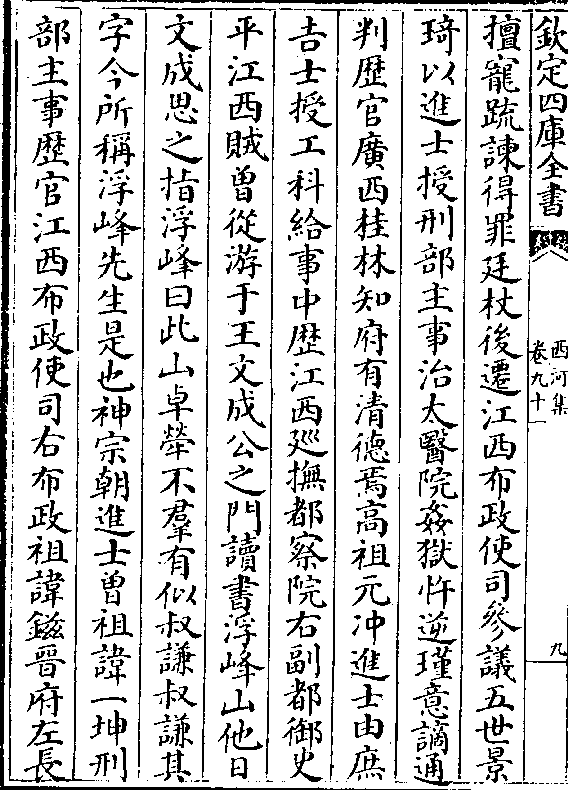 欽定四庫全書
西河集
卷九十一
九
擅寵疏諫得罪廷杖後遷江西布政使司參議五世景
琦以進士授刑部主事治太醫院姦獄忤逆瑾意謫通
判歴官廣西桂林知府有清德焉高祖元冲進士由庶
吉士授工科給事中歴江西廵撫都察院右副都御史
平江西賊曽從游于王文成公之門讀書浮峰山他日
文成思之指浮峰曰此山卓犖不羣有似叔謙叔謙其
字今所稱浮峰先生是也神宗朝進士曽祖諱一坤刑
部主事歴官江西布政使司右布政祖諱鎡晉府左長